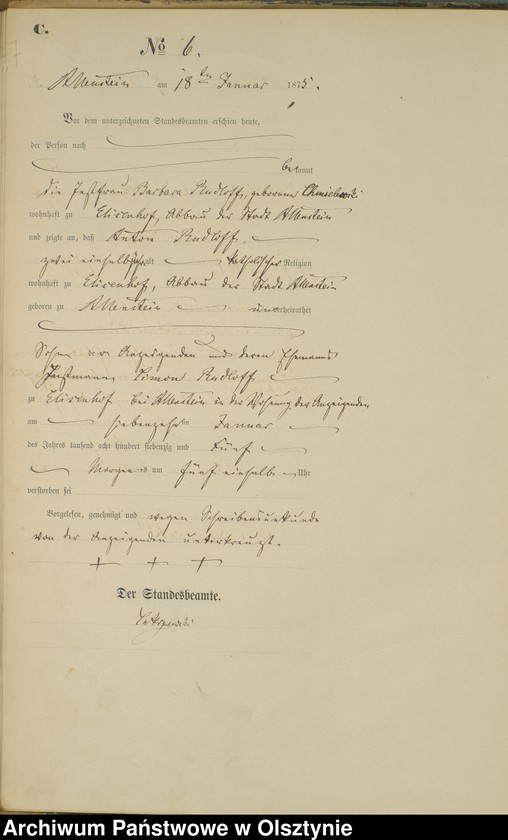 C.
No 6.
Allenstein am 18ten Januar 1875.
Vor dem unterzeichneten Standesbeamten erschien heute,
der Person nach
bekannt
die Instfrau Barbara Rudloff, geborene Chmielewski
wohnhaft zu Elisenhof, Abbau der Stadt Allenstein
und zeigte an, daß Anton Rudloff,
zwei einhalb Jahr alt katholischer Religion
wohnhaft zu Elisenhof, Abbau der Stadt Allenstein
geboren zu Allenstein unverheirathet
Sohn der Anzeigenden und deren Ehemann
Instmann Simon Rudloff
zu Elisenhof bei Allenstein in der Wohnung der Anzeigenden
am siebenzehnten Januar
des Jahres tausend acht hundert siebenzig und fünf
Morgens um fünf einhalb Uhr
verstorben sei
Vorgelesen, genehmigt und wegen Schreibensunkunde
von der Anzeigenden unterkreuzt.
+ + +
Der Standesbeamte.
Archiwum Państwowe w Olsztynie